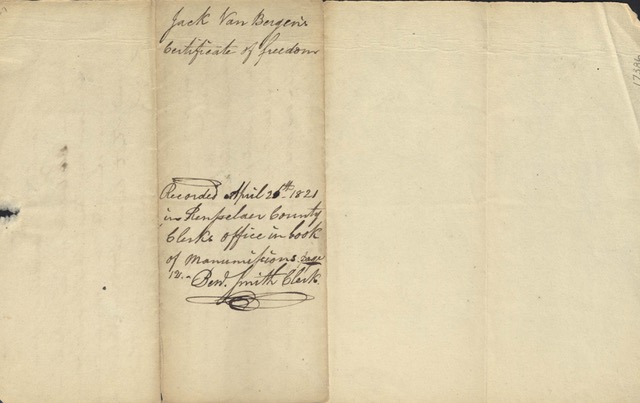 Jack Van Bergen's
Certificate of freedom
Recorded April 26th 1821
in Rensselaer County
Clerks office in book
of Manumissions. page
Benj. Smith Clerk.